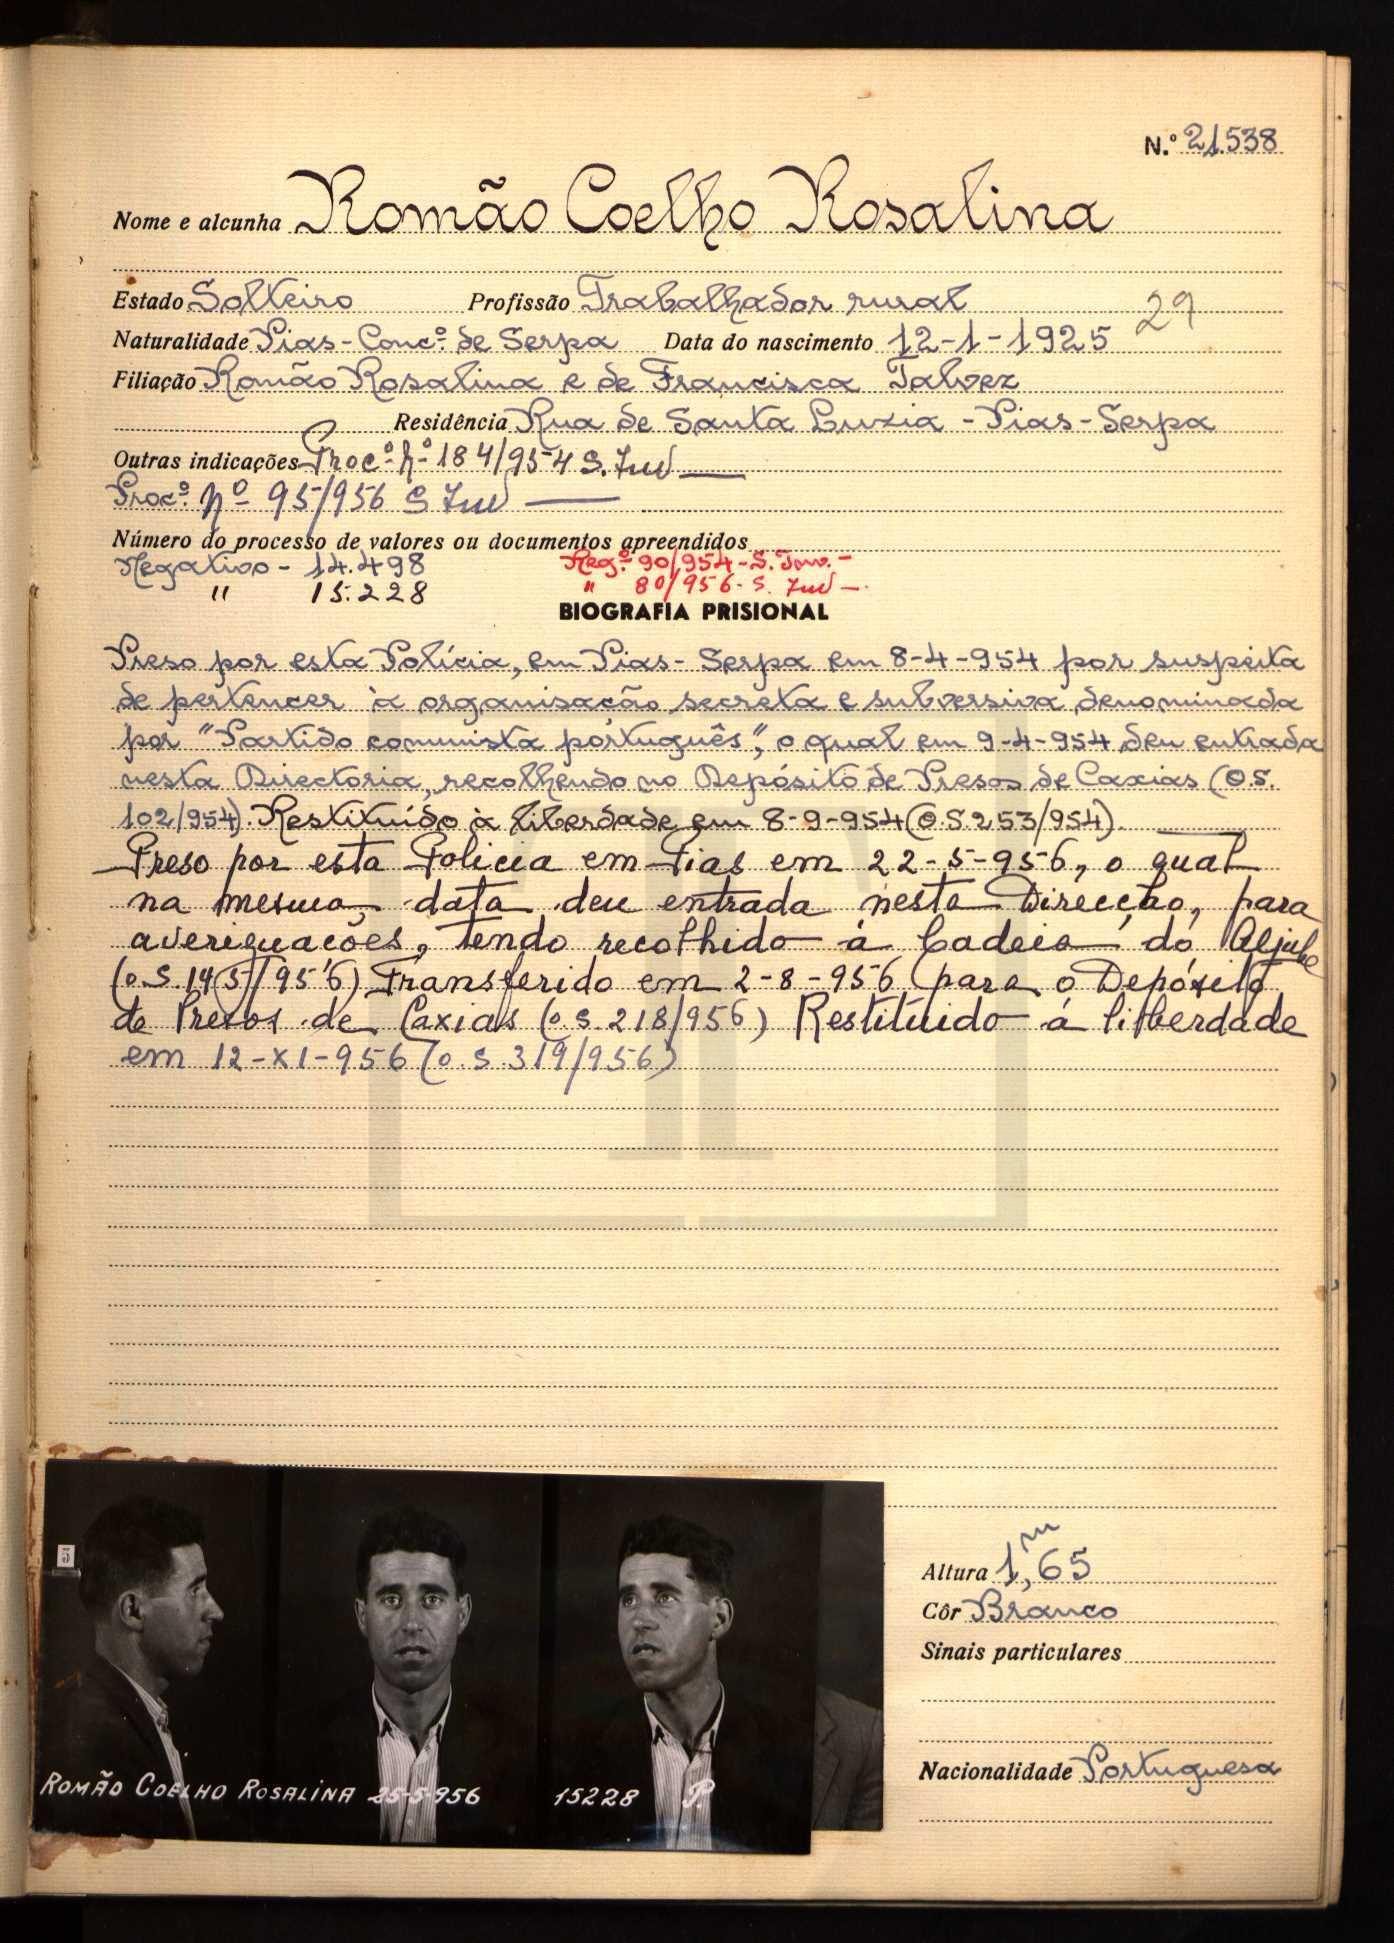 N.º 21.538
Nome e alcunha Romão Coelho Rosalina
Estado Solteiro Profissão Trabalhador rural
29
Naturalidade Pias - Concº. de Serpa Data do nascimento 12-1-1925
Filiação Romão Rosalina e de Francisca Talvez
Residência Rua de Santa Luzia - Pias - Serpa
Outras indicações Procº. nº 184/954 S. Inv
Procº. nº 95/956 S Inv
Número do processo de valores ou documentos apreendidos
Negativo - 14.498 Regº. 90/954 - S. Inv. -
" 15.228 " 80/956 - S. Inv -
BIOGRAFIA PRISIONAL
Preso por esta Polícia, em Pias - Serpa em 8-4-954 por suspeita
de pertencer à organisação secreta e subversiva denominada
por "Partido comunista português", o qual em 9-4-954 deu entrada
nesta Directoria, recolhendo no Depósito de Presos de Caxias (O.S.
102/954). Restituído à liberdade em 8-9-954 (O.S. 253/954).
Preso por esta Policia em Pias em 22-5-956, o qual
na mesma, data deu entrada nesta Direcção, para
averiguações, tendo recolhido á Cadeia do Aljube
(o.S. 145/956) Transferido em 2-8-956 para o Depósito
de Presos de Caxias (o.s. 218/956) Restituido á liberdade
em 12-XI-956 (o.s. 319/956)
5
Altura 1,m65
Côr Branco
Sinais particulares
Nacionalidade Portuguesa
ROMÃO COELHO ROSALINA 25-5-956 15228 P.